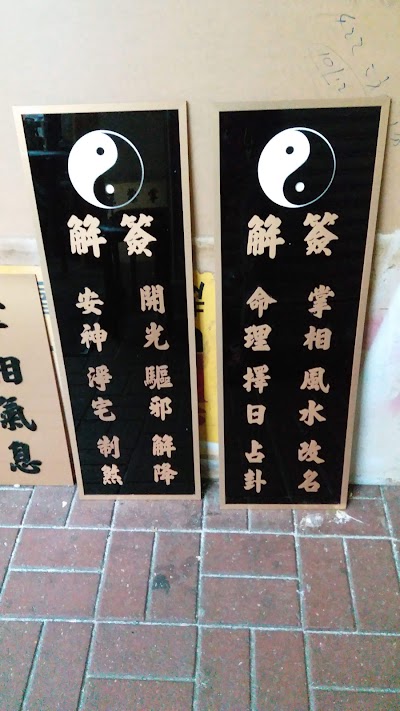 相氣息
解簽
開光驅邪解降
安神淨宅制煞
解簽
掌相風水改名
命理擇日占卦